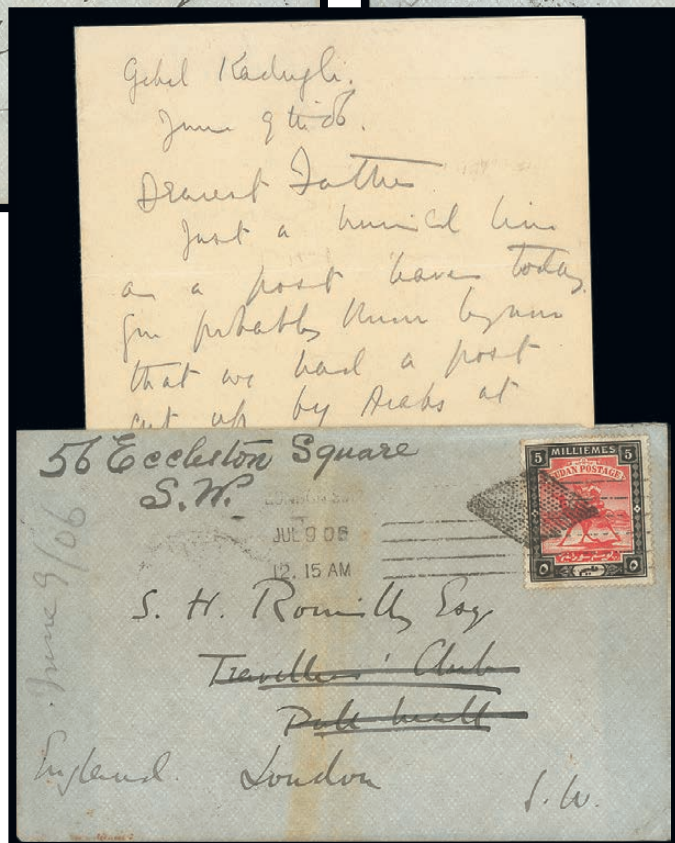 Gebel Kadugli.
June 9th 06.
Dearest Father
Just a hurried line
as a post leaves today.
You probably know by now
that we had a post
cut up by Arabs at
56 Eccleston Square
S.W.
LONDON S.W.
JUL 9 06
12.15 AM
5 MILLIEMES 5
SUDAN POSTAGE
June 9/06
S. H. Romilly Esq
Travellers' Club
Pall Mall
England. London
S.W.